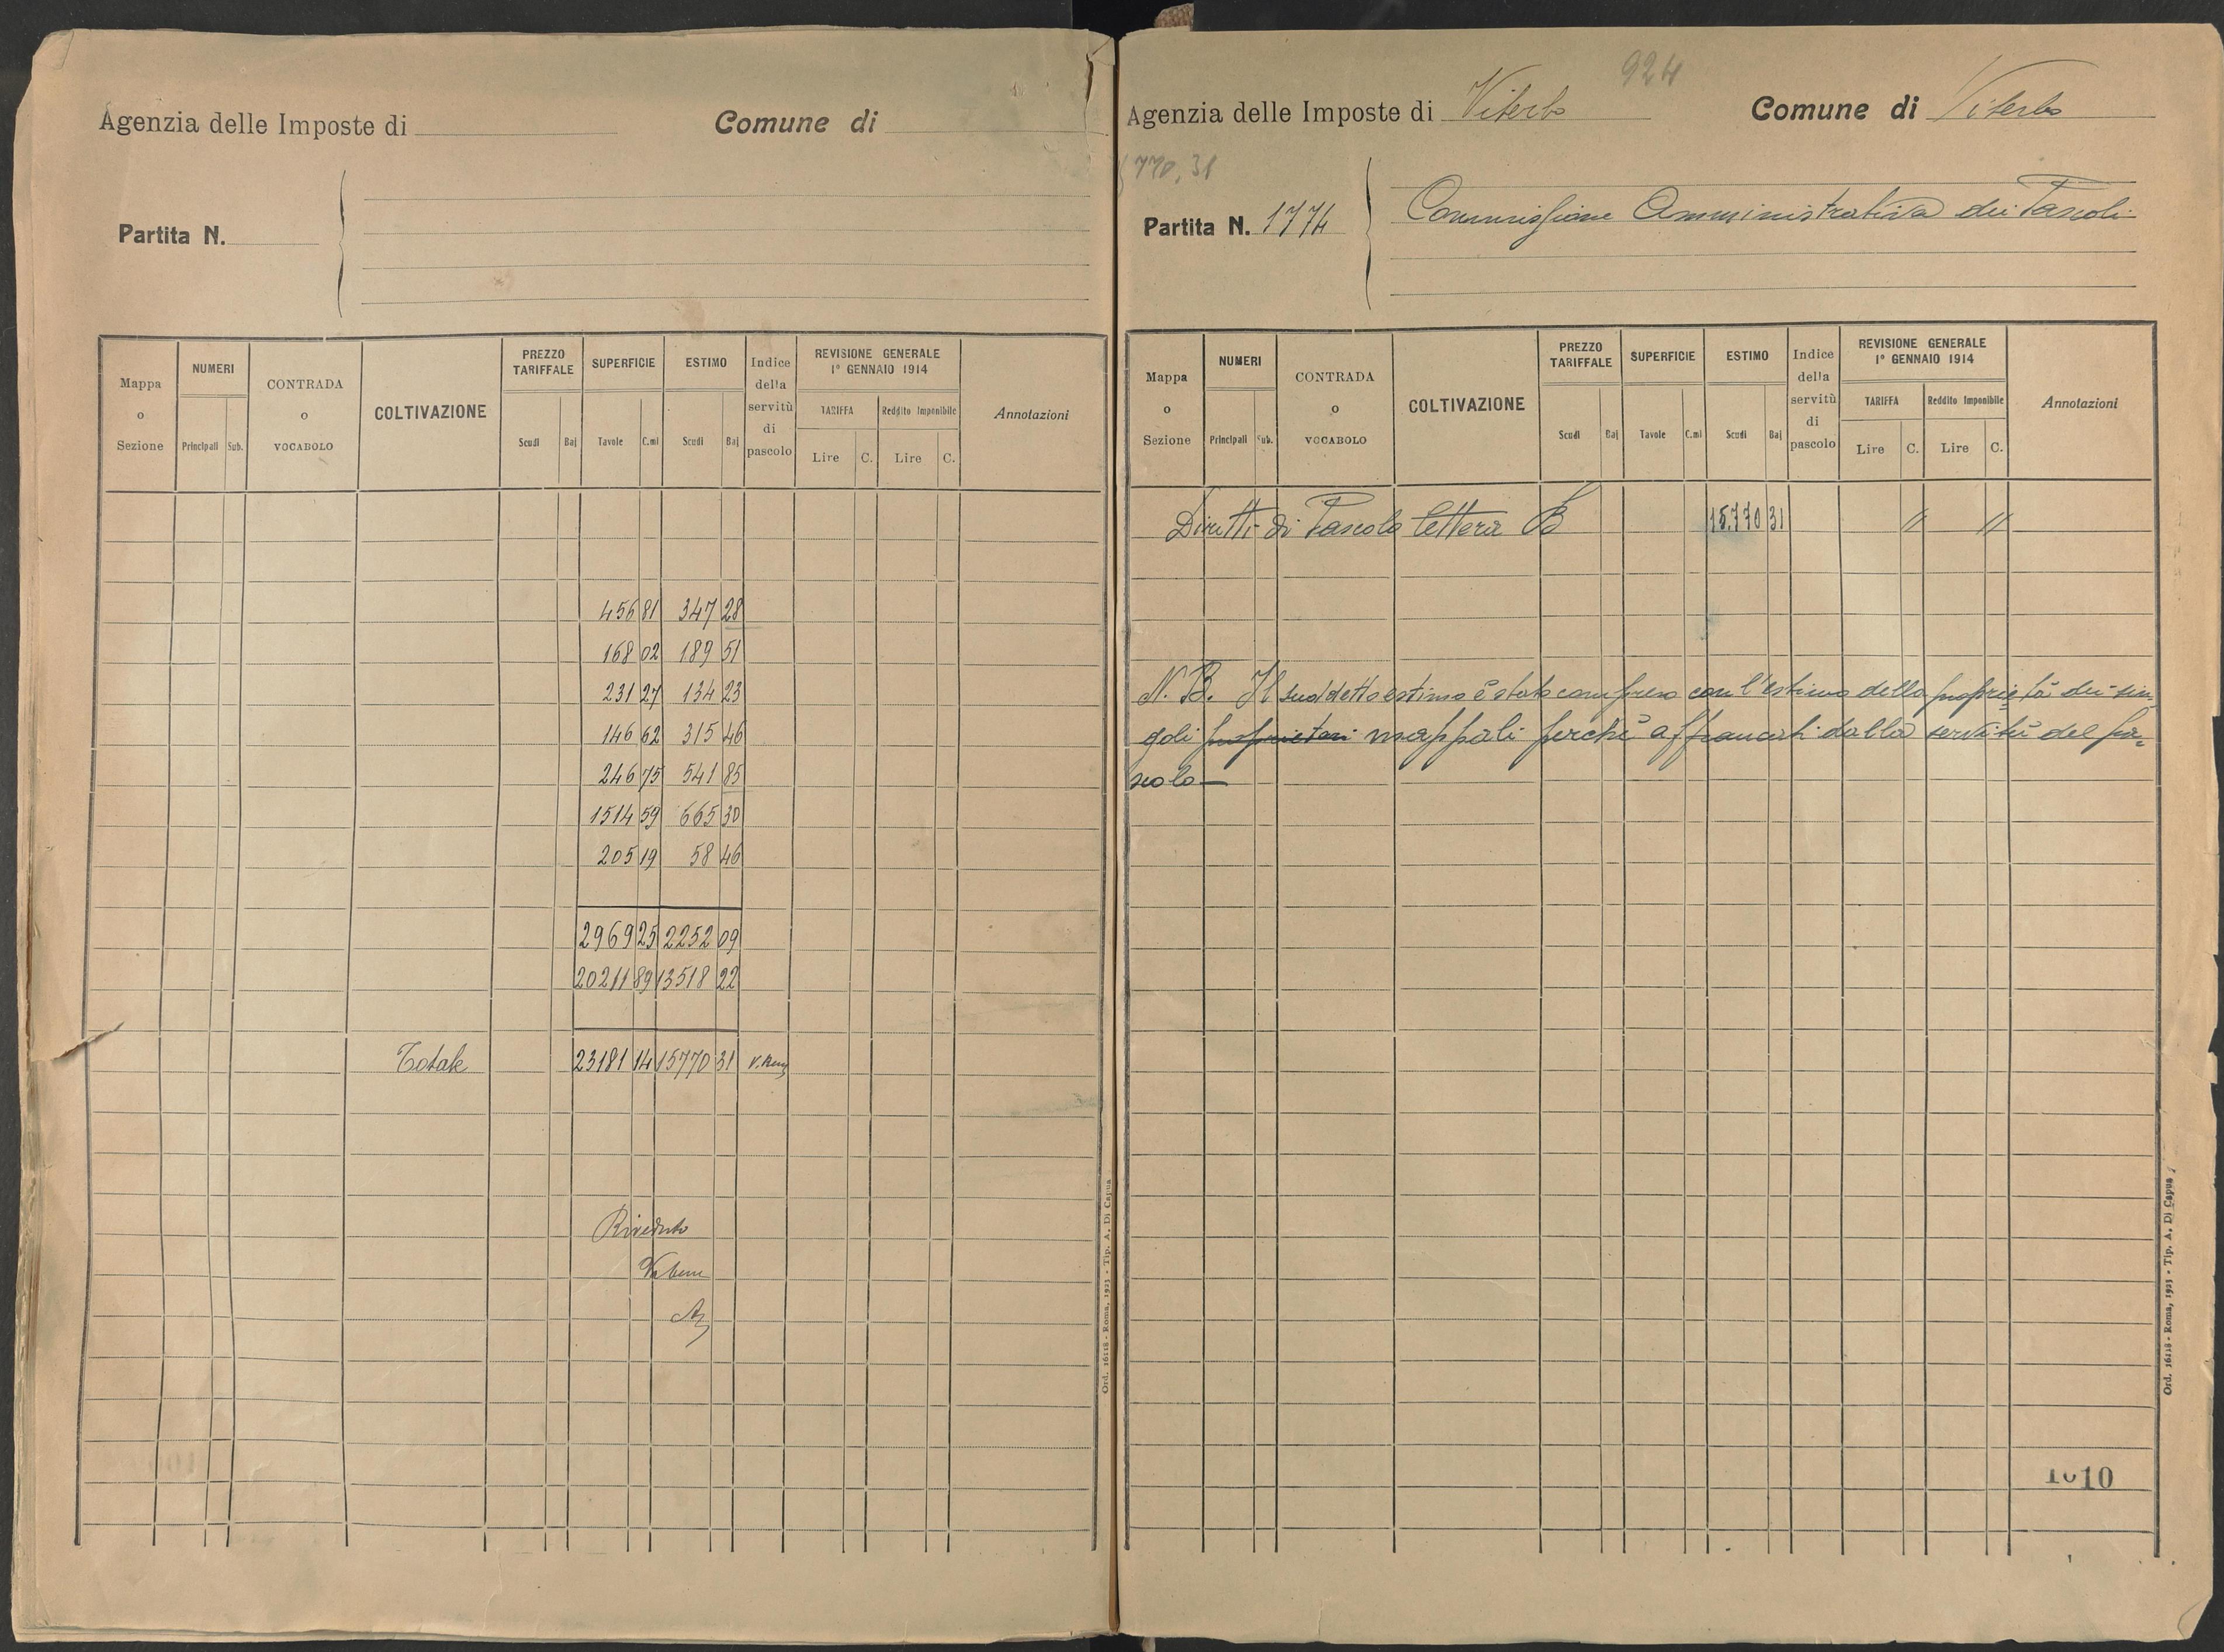 Agenzia delle Imposte di
Comune di
Partita N.
Mappa o Sezione
NUMERI
Principali
Sub.
CONTRADA o VOCABOLO
COLTIVAZIONE
PREZZO TARIFFALE
Scudi
Baj
SUPERFICIE
Tavole
C.mi
ESTIMO
Scudi
Baj
Indice della servitù di pascolo
REVISIONE GENERALE
1° GENNAIO 1914
TARIFFA
Reddito Imponibile
Lire
C.
Lire
C.
Annotazioni
456 81 347 28
168 02 189 51
231 27 134 23
146 62 315 46
246 75 541 85
1514 59 665 30
205 19 58 46
2969 25 2252 09
20211 89 13518 22
Totale 23181 14 15770 31
Riveduto
Va bene
Ord. 16118 - Roma, 1923 - Tip. A. Di Capua
924
Agenzia delle Imposte di Viterbo
Comune di Viterbo
770,31
Partita N. 1774
Commissione Amministrativa dei Pascoli
Mappa o Sezione
NUMERI
Principali
Sub.
CONTRADA o VOCABOLO
COLTIVAZIONE
PREZZO TARIFFALE
Scudi
Baj
SUPERFICIE
Tavole
C.mi
ESTIMO
Scudi
Baj
Indice della servitù di pascolo
REVISIONE GENERALE
1° GENNAIO 1914
TARIFFA
Reddito Imponibile
Lire
C.
Lire
C.
Annotazioni
Diritti di Pascolo lettera B 15.770 31 " "
N. B. Il suddetto estimo è stato compreso con l'estimo della proprietà dei sin-
goli proprietari mappali perchè affrancati dalla servitù del pa=
scolo
1010
Ord. 16118 - Roma, 1923 - Tip. A. Di Capua